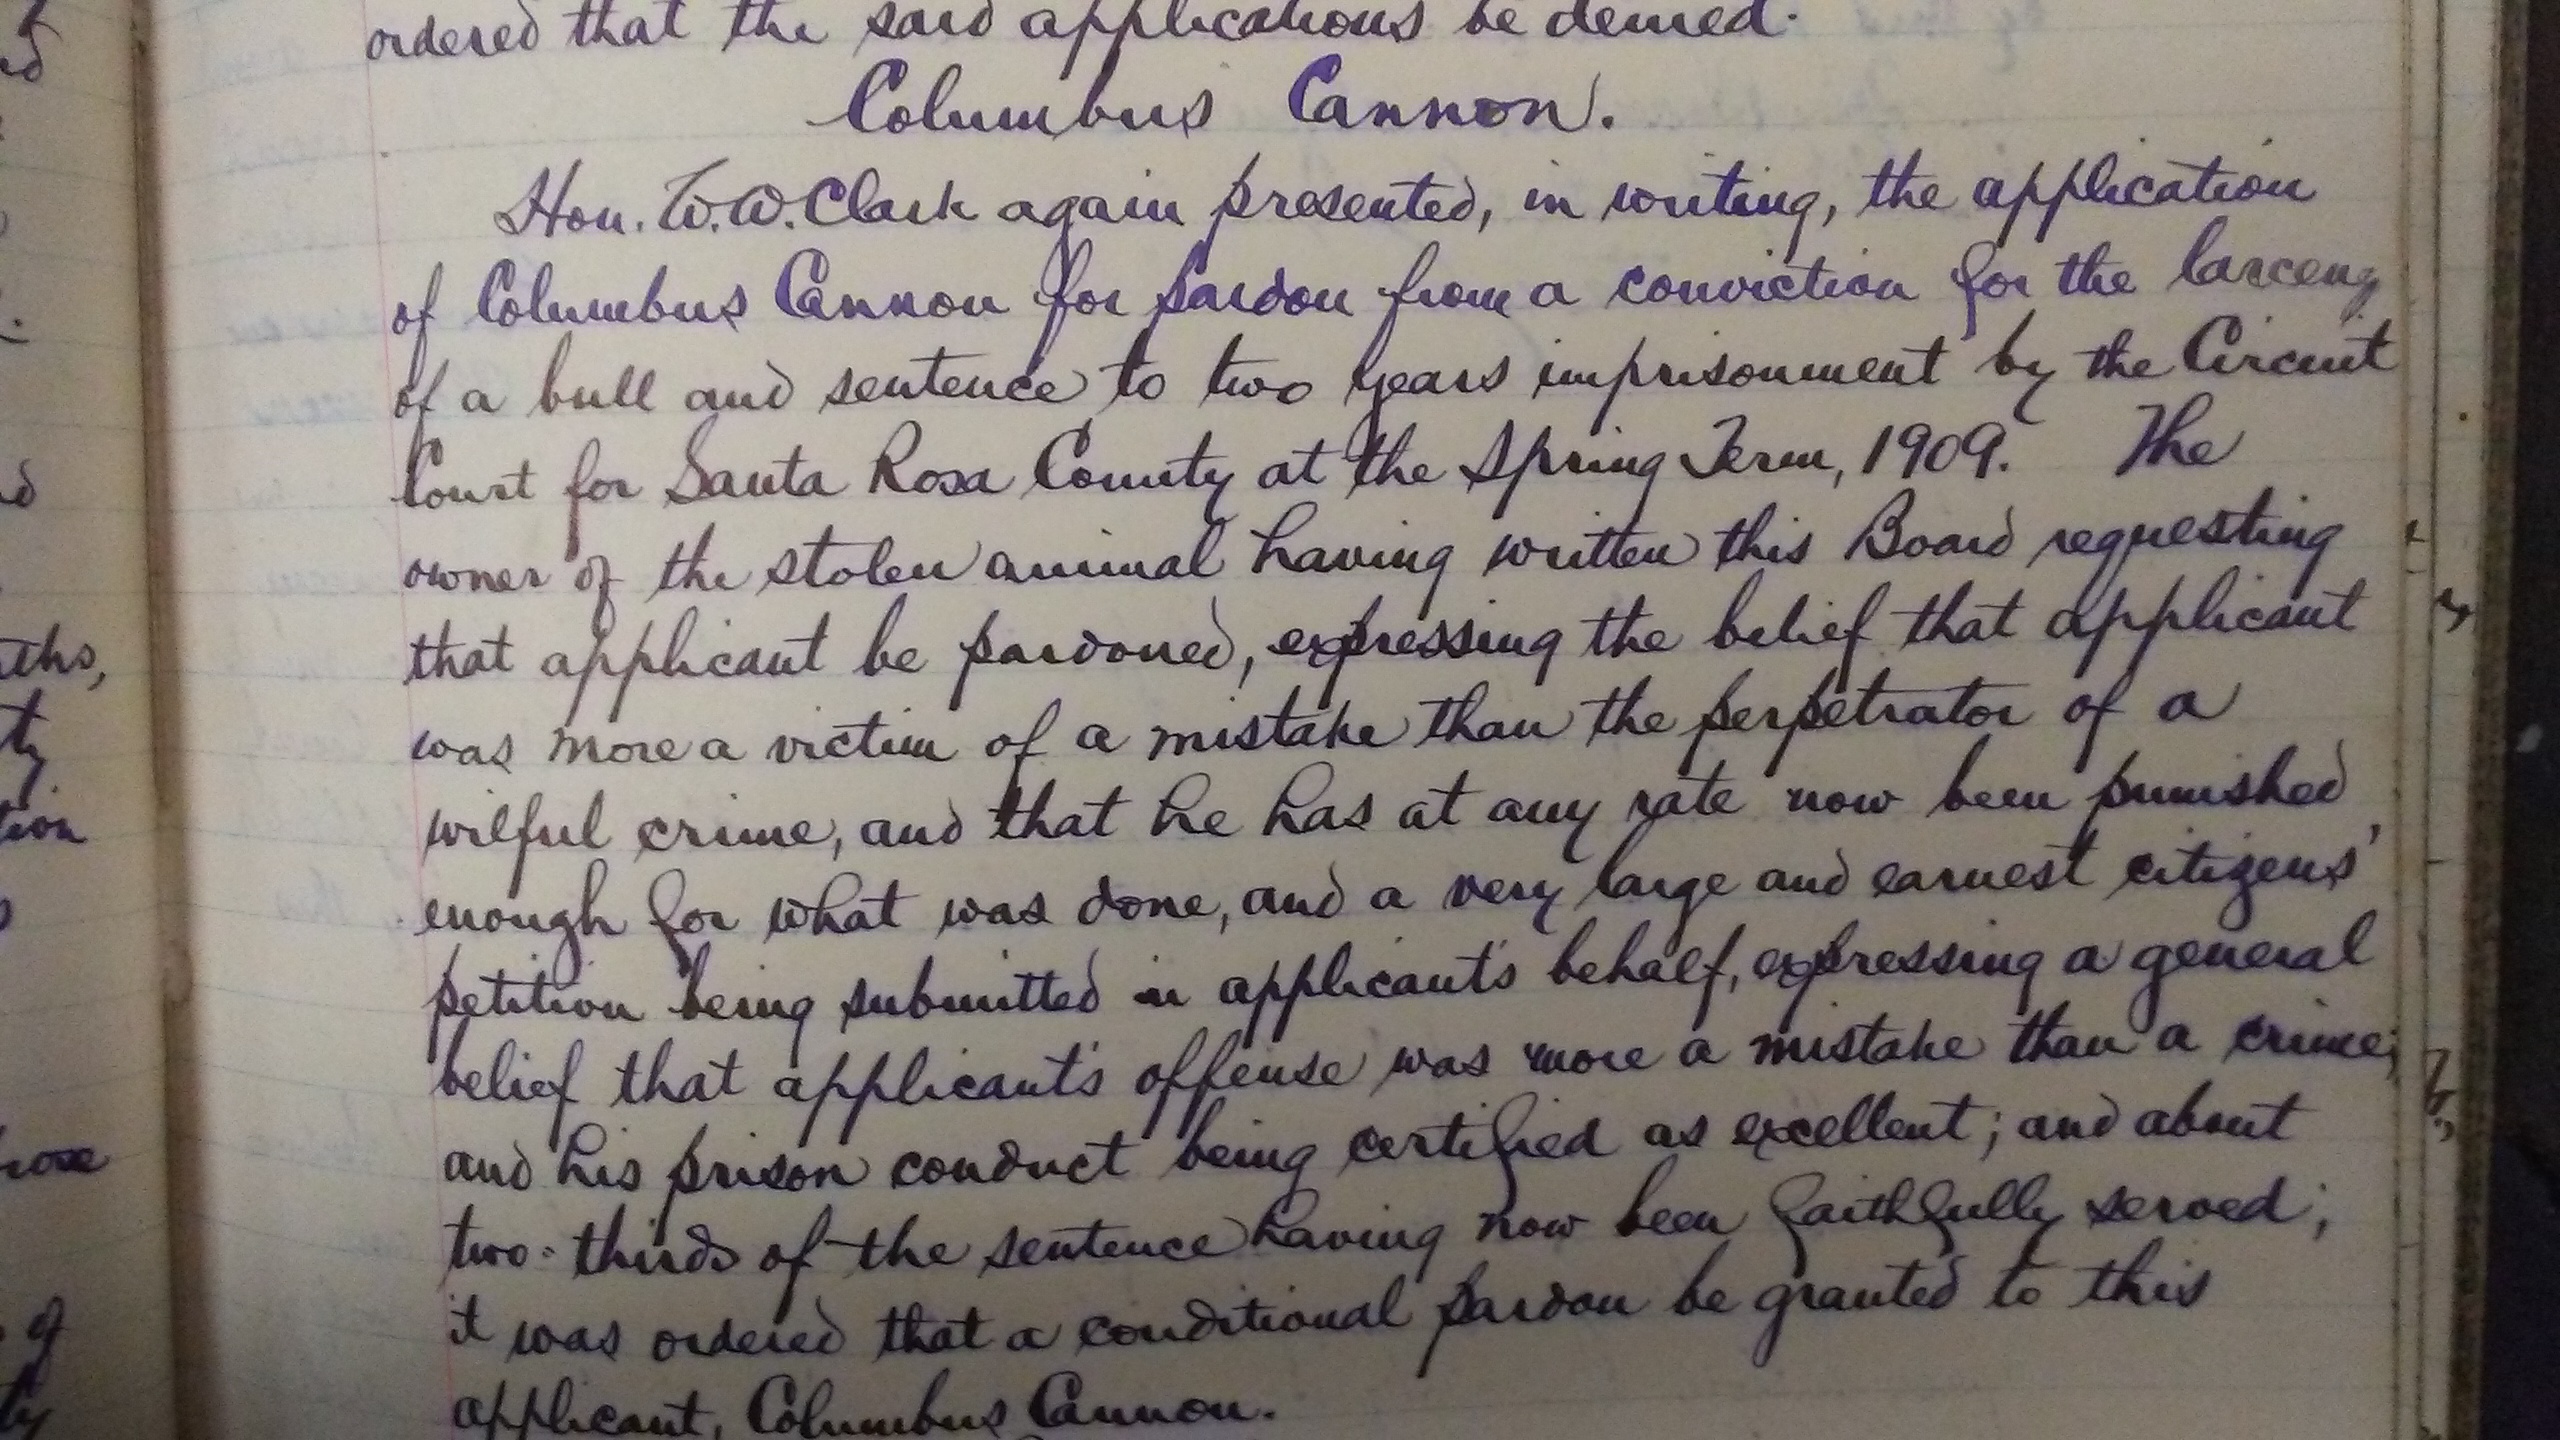 ordered that the said applications be denied.
Columbus Cannon.
Hon. W. W. Clark again presented, in writing, the application
of Columbus Cannon for pardon from a conviction for the larceny
of a bull and sentence to two years imprisonment by the Circuit
Court for Santa Rosa County at the Spring Term, 1909. The
owner of the stolen animal having written this Board requesting
that applicant be pardoned, expressing the belief that applicant
was more a victim of a mistake than the perpetrator of a
wilful crime, and that he has at any rate now been punished
enough for what was done, and a very large and earnest citizens'
petition being submitted in applicant's behalf, expressing a general
belief that applicant's offense was more a mistake than a crime;
and his prison conduct being certified as excellent; and about
two-thirds of the sentence having now been faithfully served;
it was ordered that a conditional pardon be granted to this
applicant, Columbus Cannon.